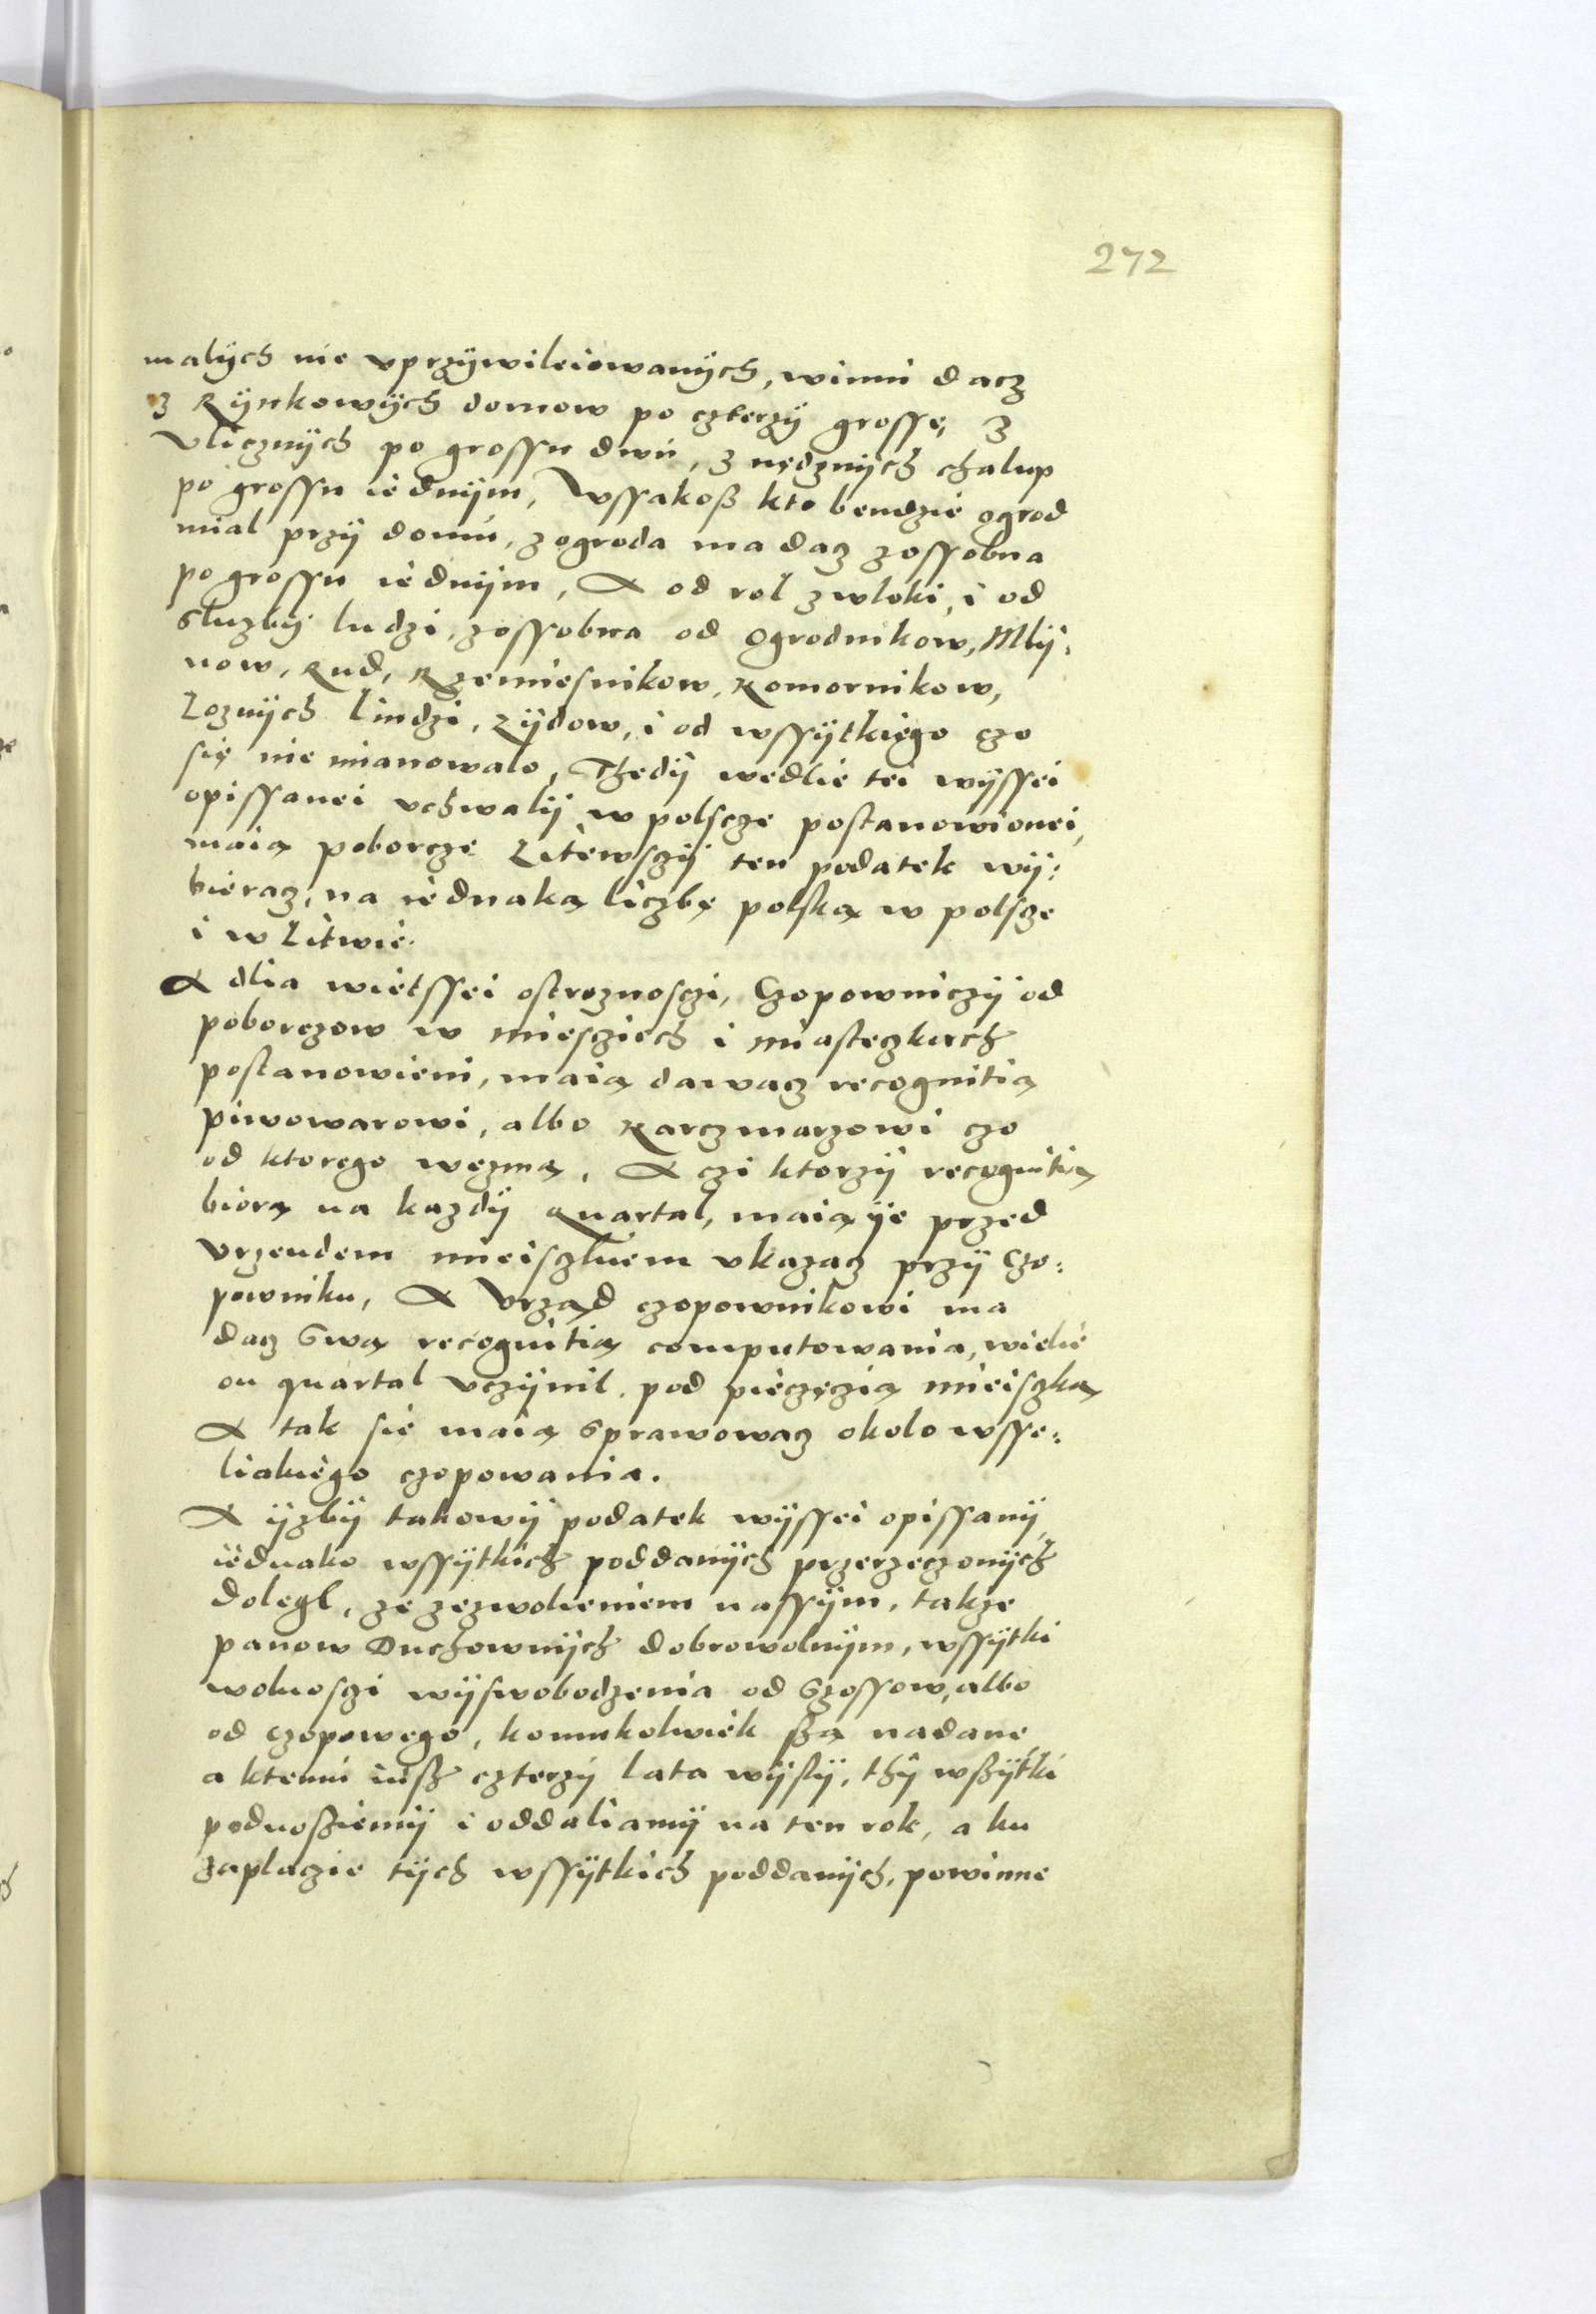 272
malÿch nie vprzÿwileiowanÿch, winni dacz
z Rÿnkowÿch domow po czterzÿ grosse, z
Vlicznÿch po grossu dwu, z nędznÿch chalup
po grossu iednÿm, Wssakoß kto bendzie ogrod
mial przÿ domu, z ogroda ma dacz zossobna
po grossu iednÿm, A od rol z wloki, i od
sluzbÿ ludzi, zossobna od Ogrodnikow, Mlÿ:
now, Rud, Rzemiesnikow, Komornikow,
Loznÿch liudzi, Zÿdow, i od wssÿtkiego czo
się nie mianowalo, Thedÿ wedlie tei wÿssei
opissanei vchwalÿ w polscze postanowionei,
maią poborcze Litewsczÿ ten podatek wÿ:
bieracz, na iednaką liczbę polską w polscze
i w Litwie.
A dlia wietssei ostroznosczi, Czopowniczÿ od
poborczow w miesciech i miasteczkach
postanowieni, maią dawacz recognitią
piwowarowi, albo Karczmarzowi czo
od ktorego wezmą, A czi ktorzÿ recognitią
biorą na kazdÿ Quartal, maią ÿe przed
Vrzendem mieisczkiem vkazacz przÿ Czo:
powniku, A Vrząd czopownikowi ma
dacz swą recognitią computowania, wielie
on quartal vczÿnil, pod pieczęczią mieisczką
A tak się maią sprawowacz okolo wsse:
liakiego czopowania.
A ÿzbÿ takowÿ podatek wÿssei opissanÿ,
iednako wssÿtkich poddanÿch przerzeczonÿch
dolegl, ze zezwolieniem nassÿm, takze
panow Duchownÿch dobrowolnÿm, wssÿtki
wolnosczi wÿswobodzenia od Szossow, albo
od czopowego, komukolwiek są nadane
a ktemu iusz czterzÿ lata wÿslÿ, thÿ wszÿtki
podnosziemÿ i oddaliamÿ na ten rok, a ku
zaplaczie tÿch wssÿtkich poddanÿch, powinne